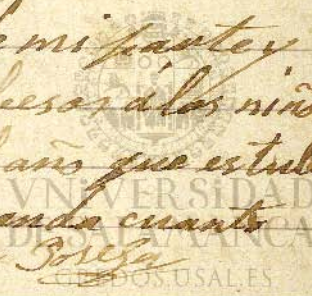 de mi parte y
besos á los niño
año que estu
manda cuanto
VNiVERSiDAD
DE SALAMANCA
GREDOS.USAL.ES